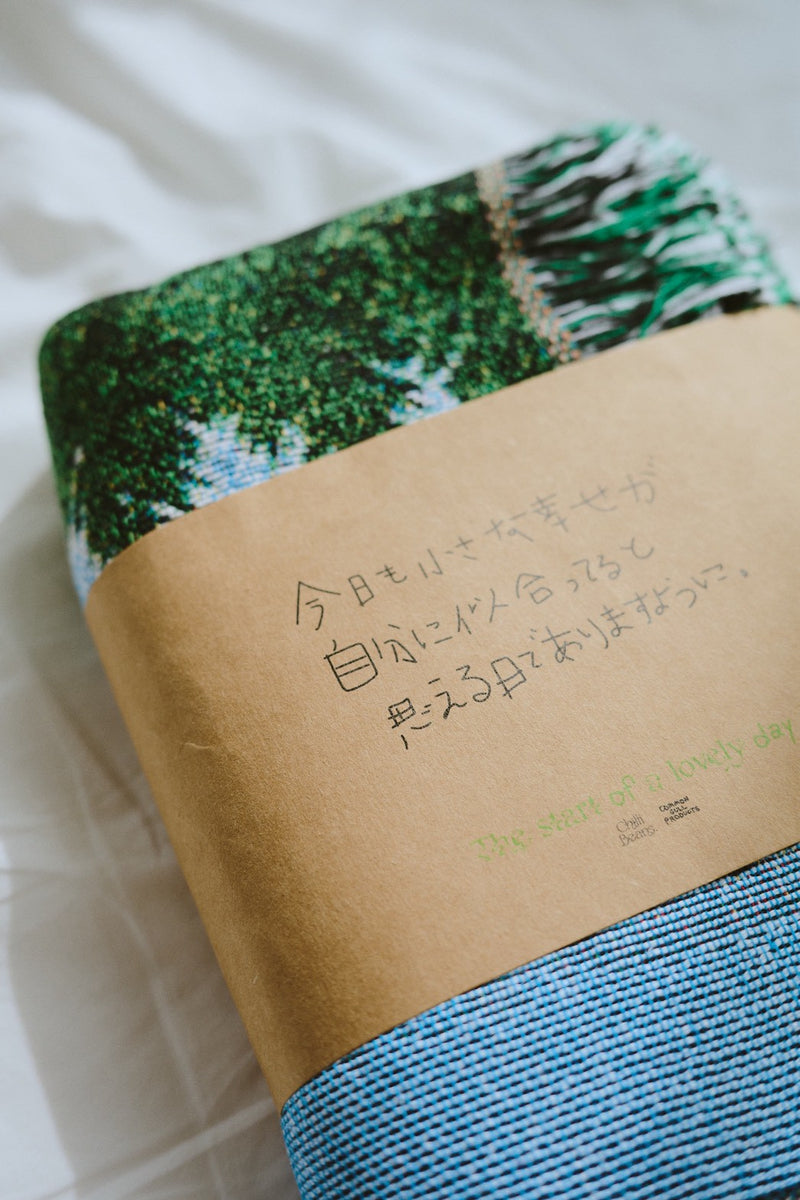 今日も小さな幸せが
自分に似合ってると
思える日でありますように。
The start of a lovely day
Chilli
Beans.
COMMON
GULL
PRODUCTS